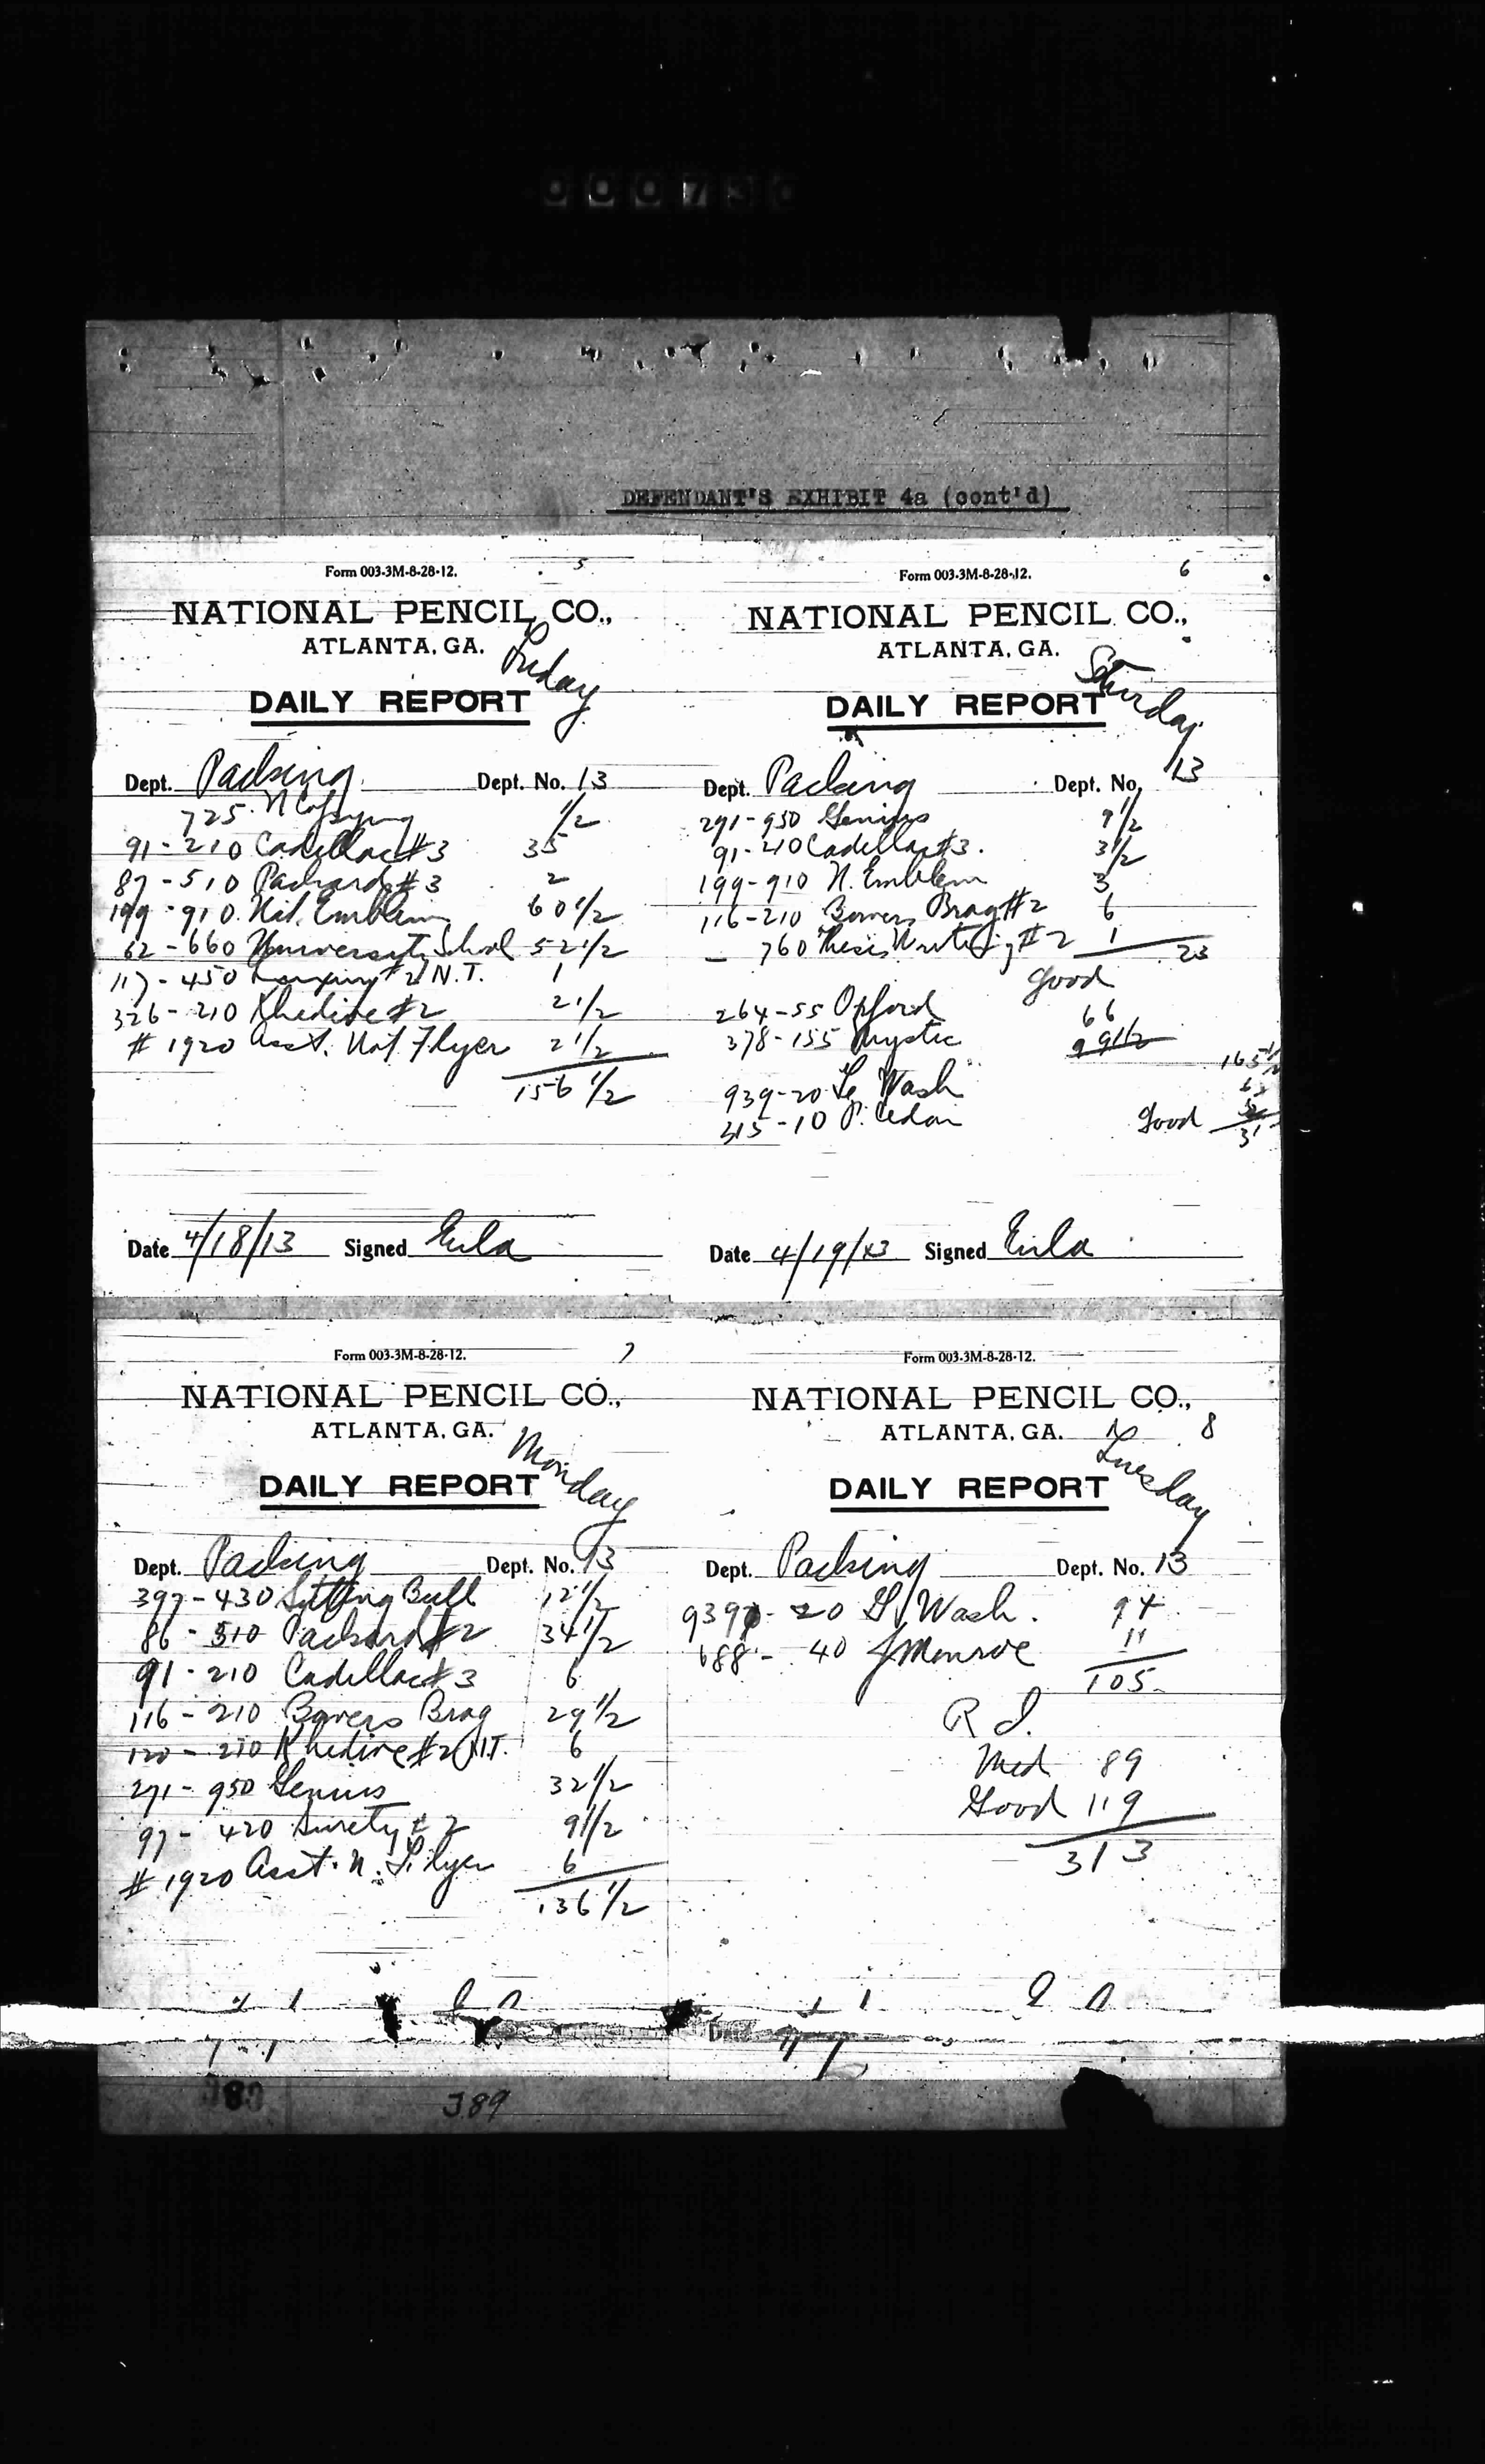 000730
DEFENDANT'S EXHIBIT 4a (cont'd)
Form 003-3M-8-28-12. 5
NATIONAL PENCIL CO.,
ATLANTA, GA.
Friday
DAILY REPORT
Dept. Packing Dept. No. 13
725 N Copying 1/2
91-210 Cadillac #3 35
87-510 Packard #3 2
199-910 Nat. Emblem 60 1/2
62-660 University School 52 1/2
117-450 #2 N.T. 1
326-210 Khedive #2 2 1/2
# 1920 Asst. Nat Flyer 2 1/2
156 1/2
Date 4/18/13 Signed Eula
Form 003-3M-8-28-12. 6
NATIONAL PENCIL CO.,
ATLANTA, GA.
Saturday
DAILY REPORT
Dept. Packing Dept. No. 13
291-950 Genius 9 1/2
91-210 Cadillac #3. 3 1/2
199-910 N. Emblem 3
116-210 Bowers Brag #2 6
760 Thesis Writing #2 1 23
Good
264-55 Oxford 66
378-155 Mystic 99 1/2
165 1/2
939-20 Wash
315-10 P. Cedar Good
31
Date 4/19/13 Signed Eula
Form 003-3M-8-28-12. 7
NATIONAL PENCIL CO.,
ATLANTA, GA.
Monday
DAILY REPORT
Dept. Packing Dept. No. 13
397-430 Sitting Bull 12 1/2
86-510 Packard #2 34 1/2
91-210 Cadillac #3 6
116-210 Bowers Brag 29 1/2
120-210 Khedive #2 N.T. 6
291-950 Genius 32 1/2
97-420 Surety #2 9 1/2
# 1920 Asst. N. Flyer 6
136 1/2
Form 003-3M-8-28-12.
NATIONAL PENCIL CO.,
ATLANTA, GA. 8
Tuesday
DAILY REPORT
Dept. Packing Dept. No. 13
939-20 G. Wash. 94
688-40 J Monroe 11
105
R I.
Med 89
Good 119
313
Date
389